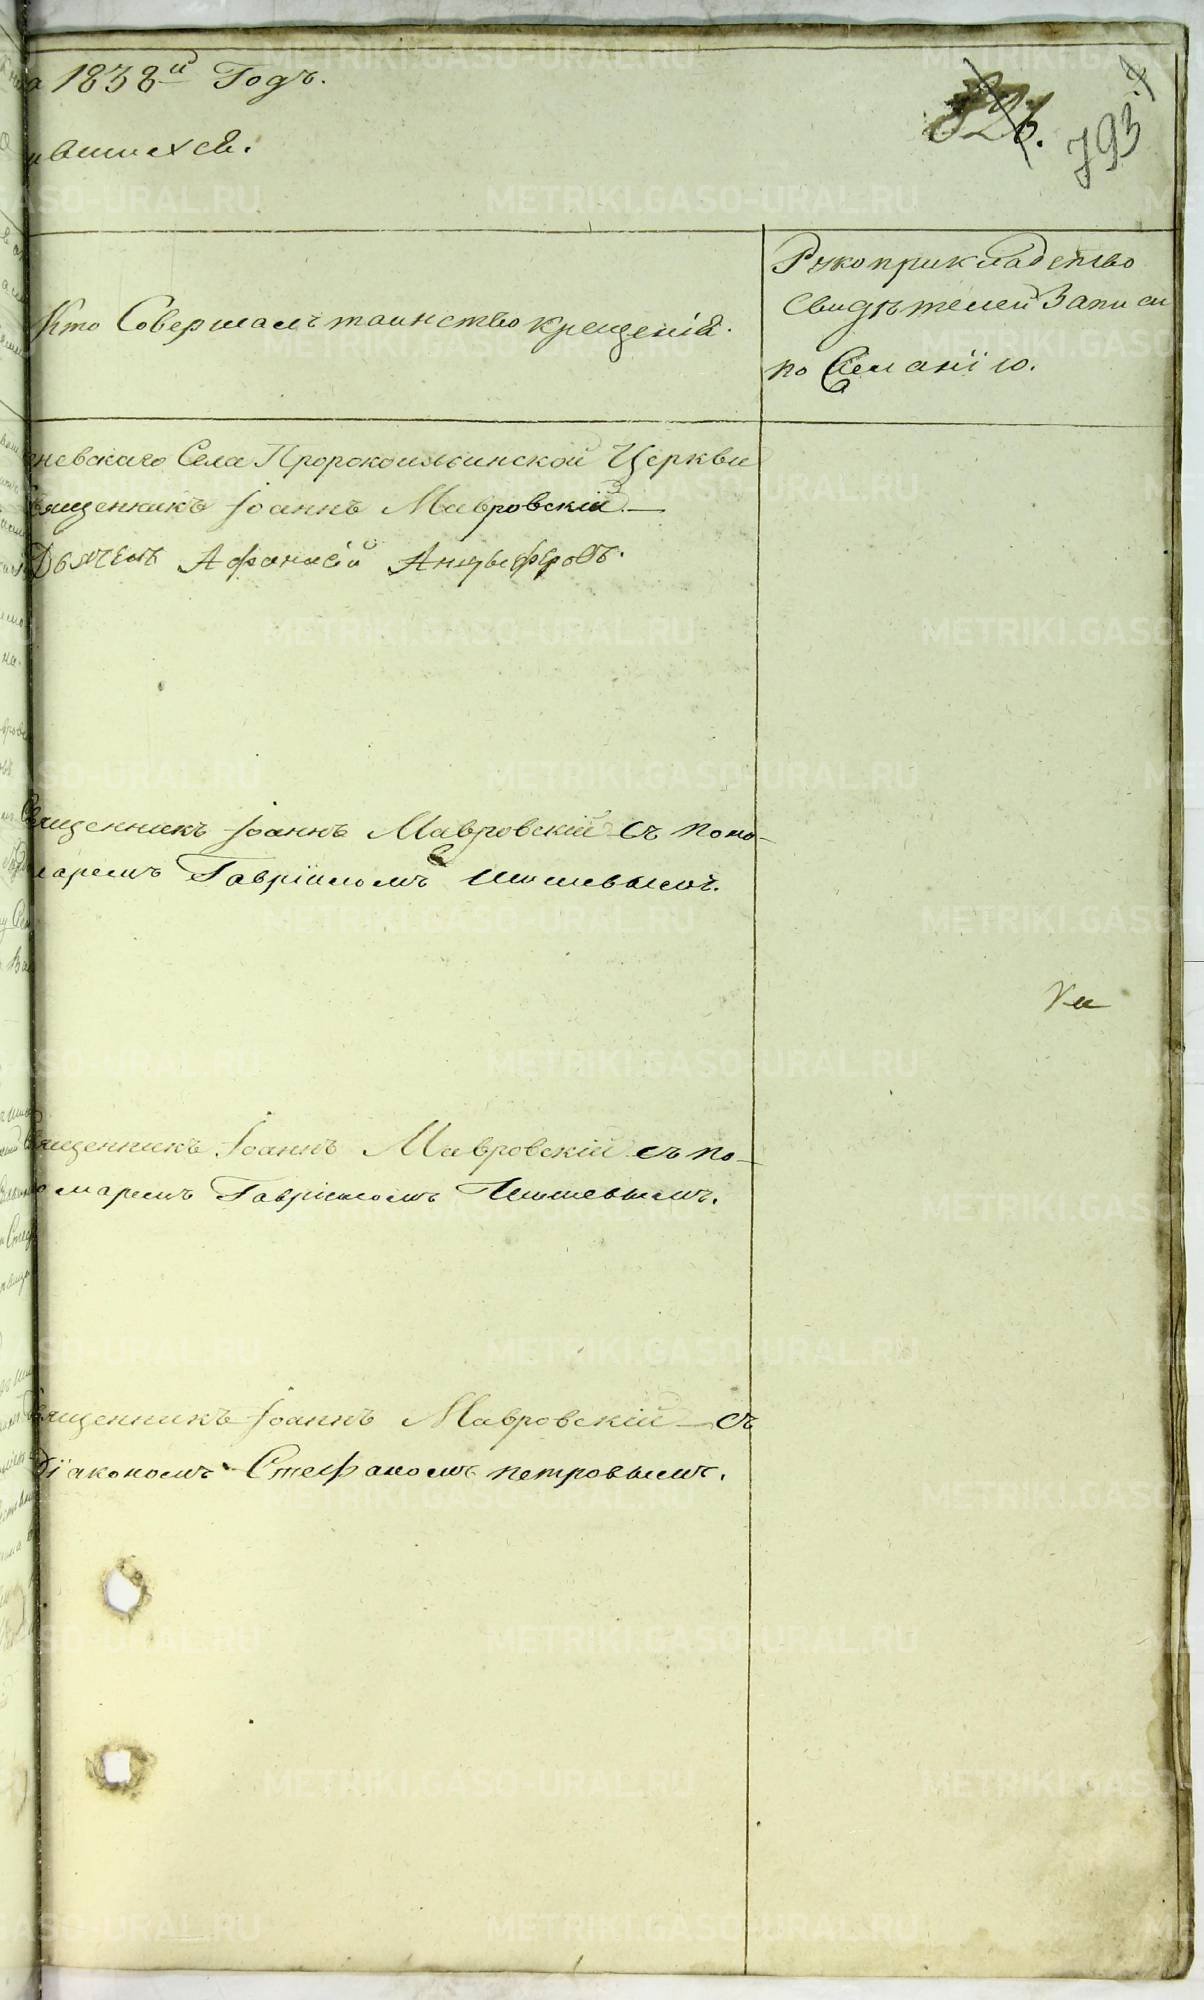 а 1838й Годъ.
326.
793
ившихся.
Кто Совершалъ таинство крещенія.
Рукоприкладство
свидѣтелей Записи
по Желанію.
невскаго Села Пророкоильинской Церкви
Священникъ Іоаннъ Мавровскій
Дьячекъ Афанасій Анцыферовъ.
Священникъ Іоаннъ Мавровскій съ Поно-
маремъ Гавріиломъ
Священникъ Іоаннъ Мавровскій съ По-
номаремъ Гавріиломъ
Священникъ Іоаннъ Мавровскій съ
діакономъ Стефаномъ петровымъ.
METRIKI.GASO-URAL.RU